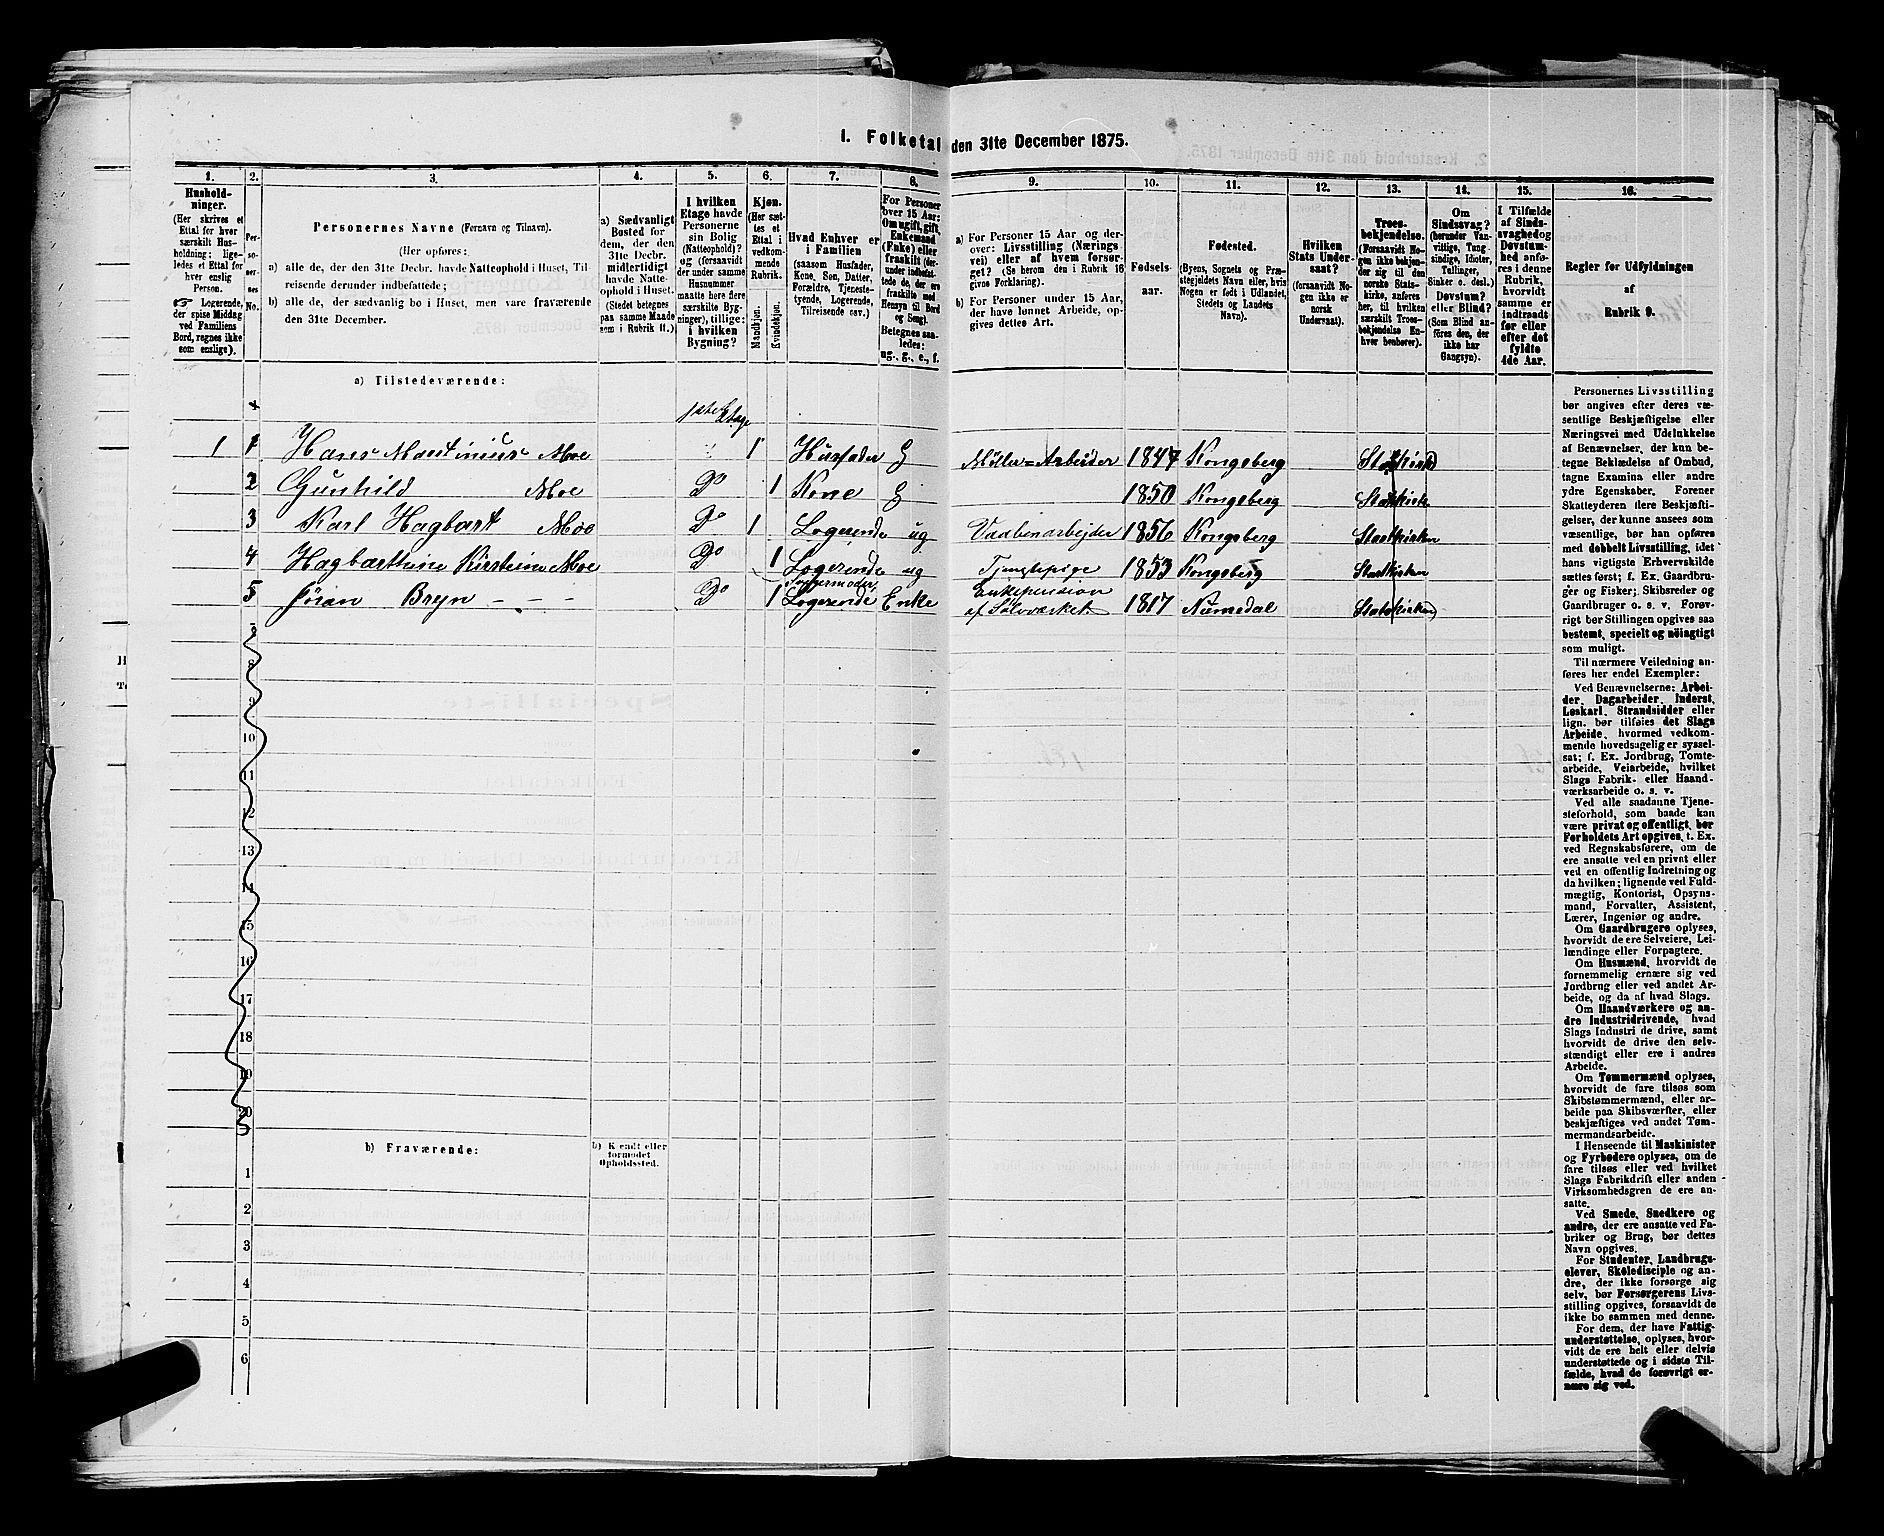 1. Folketal den 31te December 1875.
1. 2. 3. 4. 5. 6. 7. 8. 9. 10. 11. 12. 13. 14. 15. 16.
Husholdninger.
(Her skrives et
Ettal for hver
særskilt Husholdning; ligeledes
et Ettal for
hver enslig
Person.
Logerende,
der spise Middag
ved Familiens
Bord, regnes ikke
som enslige).
Personernes No.
Personernes Navne (Fornavn og Tilnavn).
(Her opføres:
a) alle de, der den 31te Decbr. havde Natteophold i Huset, Tilreisende
derunder indbefattede;
b) alle de, der sædvanlig bo i Huset, men vare fraværende
den 31te December.
a) Sædvanligt
Bosted for
dem, der den
31te Decbr.
midlertidigt
havde Natteophold
i Huset.
(Stedet betegnes
paa samme Maade
som i Rubrik 11.)
I hvilken
Etage havde
Personerne
sin Bolig
(Natteophold)?
og (forsaavidt
der under samme
Husnummer
maatte høre flere
særskilte Bygninger),
tillige:
i hvilken
Bygning?
Kjøn.
(Her sættes
et
Ettal i
vedkommende
Rubrik.
Mandkjøn.
Kvindekjøn.
Hvad Enhver er
i Familien
(saasom Husfader,
Kone, Søn, Datter,
Forældre, Tjenestetyende,
Logerende,
Tilreisende osv.)
For Personer
over 15 Aar:
Om ugift, gift,
Enkemand
(Enke) eller
fraskilt (derunder
indbefattede
de, der ere
fraskilte med
Hensyn til Bord
og Seng).
Betegnes saaledes:
ug., g., e., f.
a) For Personer 15 Aar og derover:
Livsstilling (Næringsvei)
eller af hvem forsørget?
(Se herom den i Rubrik 16
givne Forklaring).
b) For Personer under 15 Aar,
der have lønnet Arbeide, opgives
dettes Art.
Fødselsaar.
Fødested.
(Byens, Sognets og Præstegjeldets
Navn eller, hvis
Nogen er født i Udlandet,
Stedets og Landets
Navn).
Hvilken
Stats Undersaat?
(forsaavidt Nogen
ikke er
norsk
Undersaat).
Troesbekjendelse.
(Forsaavidt Nogen
ikke bekjender
sig til den
norske Statskirke,
anføres
her, til hvilken
særskilt Troesbekjendelse
Enhver
henhører).
Om
Sindssvag?
(herunder Vanvittige,
Tungsindige,
Idioter,
Tullinger,
Sinker o. desl.)
Døvstum?
eller Blind?
(Som Blind anføres
den, der
ikke har
Gangsyn).
I Tilfælde
af Sindssvaghed
og
Døvstumhed
anføres
i denne
Rubrik,
hvorvidt
samme er
indtraadt
før eller
efter det
fyldte
4de Aar.
Regler for Udfyldningen
af
Rubrik 9.
a) Tilstedeværende:
1ste Etage
1 1 Hans Martinius Moe 1 Husfader G Mølle-Arbeider 1847 Kongsberg Statskirk
2 Gunhild Moe Do 1 Kone G 1850 Kongsberg Statskirk
3 Karl Hagbart Moe Do 1 Logerende ug Vaabenarbejder 1856 Kongsberg Statskirken
4 Hagbarthine Kirstine Moe Do 1 Logerende ug Tjenstepige 1853 Kongsberg Statskirken
5 Jøran Bryn - - - Do 1 Svigermoder Logerende Enke Enkepension af Sølvværket 1817 Numedal Statskirken
8
9
10
11
12
13
14
15
16
17
18
19
20
b) Fraværende:
b) Kjendt eller
formodet
Opholdssted.
1
2
3
4
5
6
Personernes Livsstilling
bør angives efter deres væsentlige
Beskjæftigelse eller
Næringsvei med Udelukkelse
af Benævnelser, der kun betegne
Beklædelse af Ombud,
tagne Examina eller andre
ydre Egenskaber. Forener
Skatteyderen flere Beskjæftigelser,
der kunne ansees som
væsentlige, bør han opføres
med dobbelt Livsstilling, idet
hans vigtigste Erhvervskilde
sættes først; f. Ex. Gaardbruger
og Fisker; Skibsreder og
Gaardbruger o. s. v. Forøvrigt
bør Stillingen opgives saa
bestemt, specielt og nøiagtigt
som muligt.
Til nærmere Veiledning anføres
her endel Exempler:
Ved Benævnelserne: Arbeider,
Dagarbeider, Inderst,
Løskarl, Strandsidder eller
lign. bør tilføies det Slags
Arbeide, hvormed vedkommende
hovedsagelig er sysselsat;
f. Ex. Jordbrug, Tomtearbeide,
Veiarbeide, hvilket
Slags Fabrik- eller Haandværksarbeide
o. s. v.
Ved alle saadanne Tjenesteforhold,
som baade kan
være privat og offentligt, bør
Forholdets Art opgives, t. Ex.
ved Regnskabsførere, om de
ere ansatte ved en privat eller
ved en offentlig Indretning og
da hvilken; lignende ved Fuldmægtig,
Kontorist, Opsynsmand,
Forvalter, Assistent,
Lærer, Ingeniør og andre.
Om Gaardbrugere oplyses,
hvorvidt de ere Selveiere, Leilændinge
eller Forpagtere.
Om Husmænd, hvorvidt de
fornemmelig ernære sig ved
Jordbrug eller ved andet Arbeide,
og da af hvad Slags.
Om Haandværkere og andre
Industridrivende, hvad
Slags Industri de drive, samt
hvorvidt de drive den selvstændigt
eller ere i andres
Arbeide.
Om Tømmermænd oplyses,
hvorvidt de fare tilsøs som
Skibstømmermænd, eller arbeide
paa Skibsværfter, eller
beskjæftiges ved andet Tømmermandsarbeide.
I Henseende til Maskinister
og Fyrbødere oplyses, om de
fare tilsøs eller ved hvilket
Slags Fabrikdrift eller anden
Virksomhedsgren de ere ansatte.
Ved Smede, Snedkere og
andre, der ere ansatte ved Fabriker
og Brug, bør dettes
Navn opgives.
For Studenter, Landbrugselever,
Skoledisciple og andre,
der ikke forsørge sig
selv, bør Forsørgerens Livsstilling
opgives, forsaavidt de
ikke bo sammen med denne.
For dem, der have Fattigunderstøttelse,
oplyses, hvorvidt
de ere helt eller delvis
understøttede og i sidste Tilfælde,
hvad de forøvrigt ernære
sig ved.